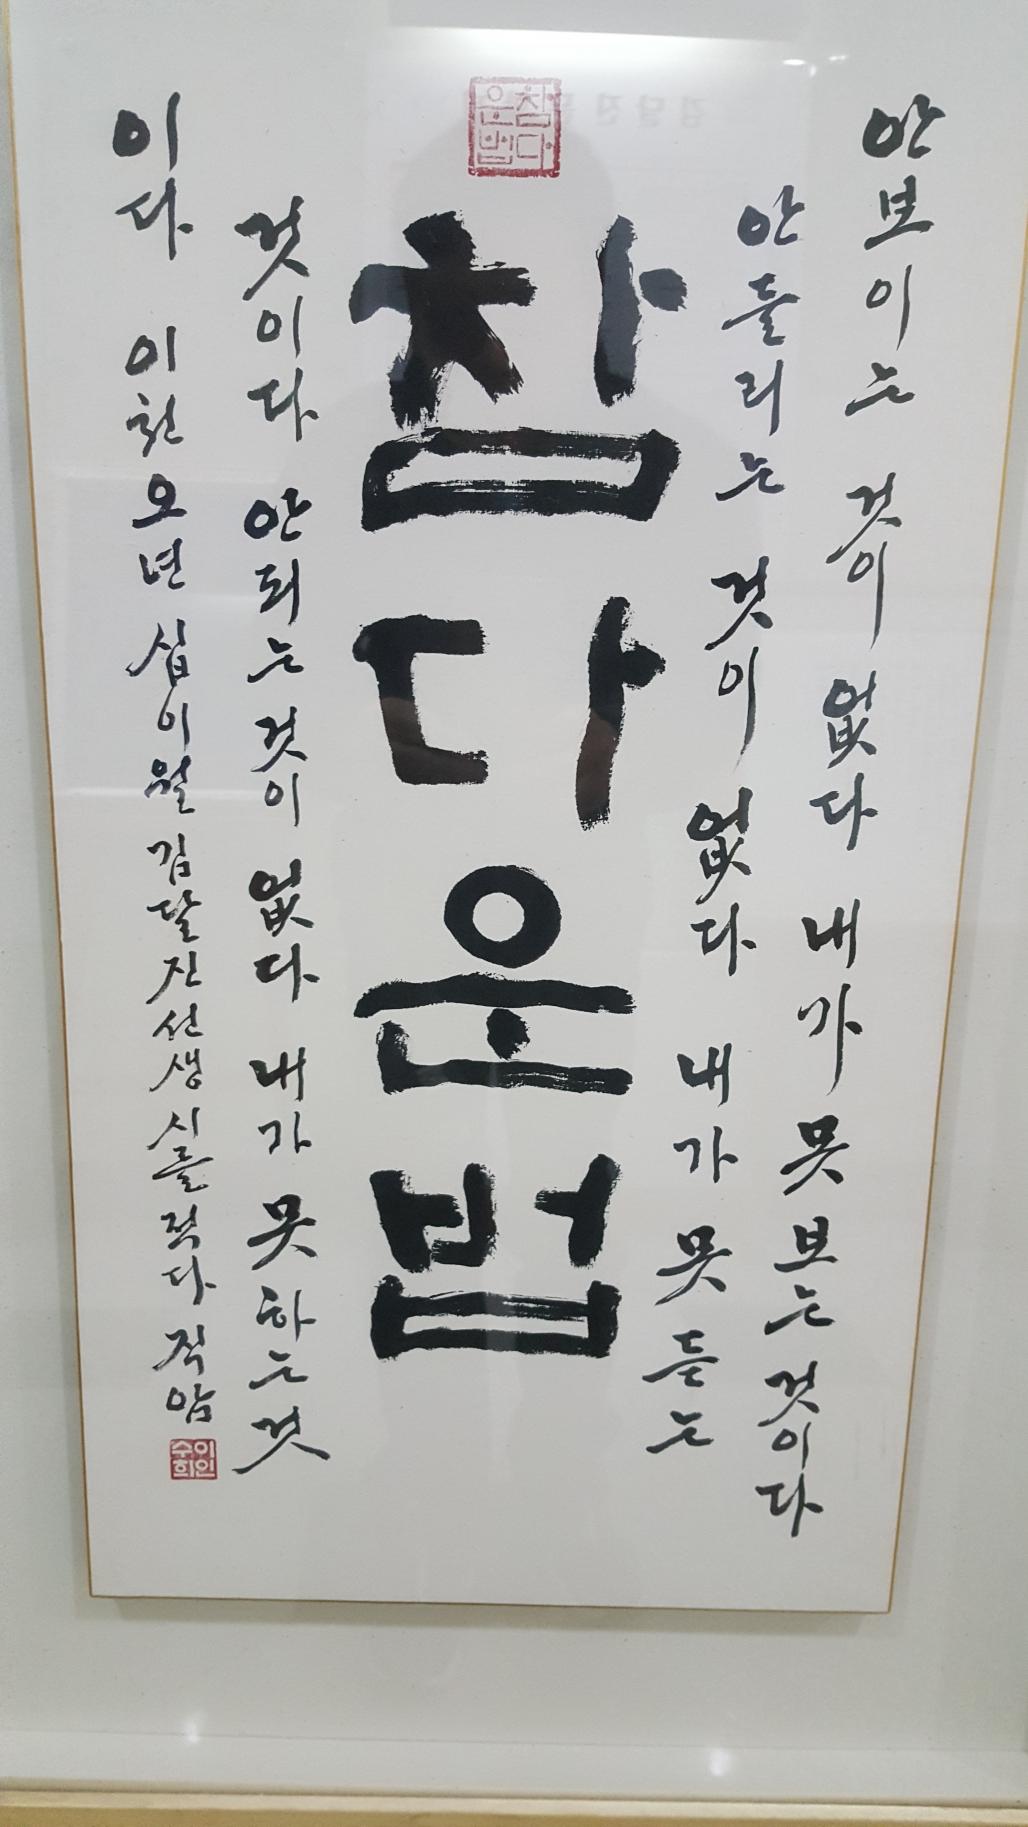 참다
운법
안보이는 것이 없다 내가 못 보는 것이다
안들리는 것이 없다 내가 못 듣는
참다운법
것이다 안되는 것이 없다 내가 못 하는 것
이다 이천오년 십이월 김달진선생 시를 적다 직암
이인
수희